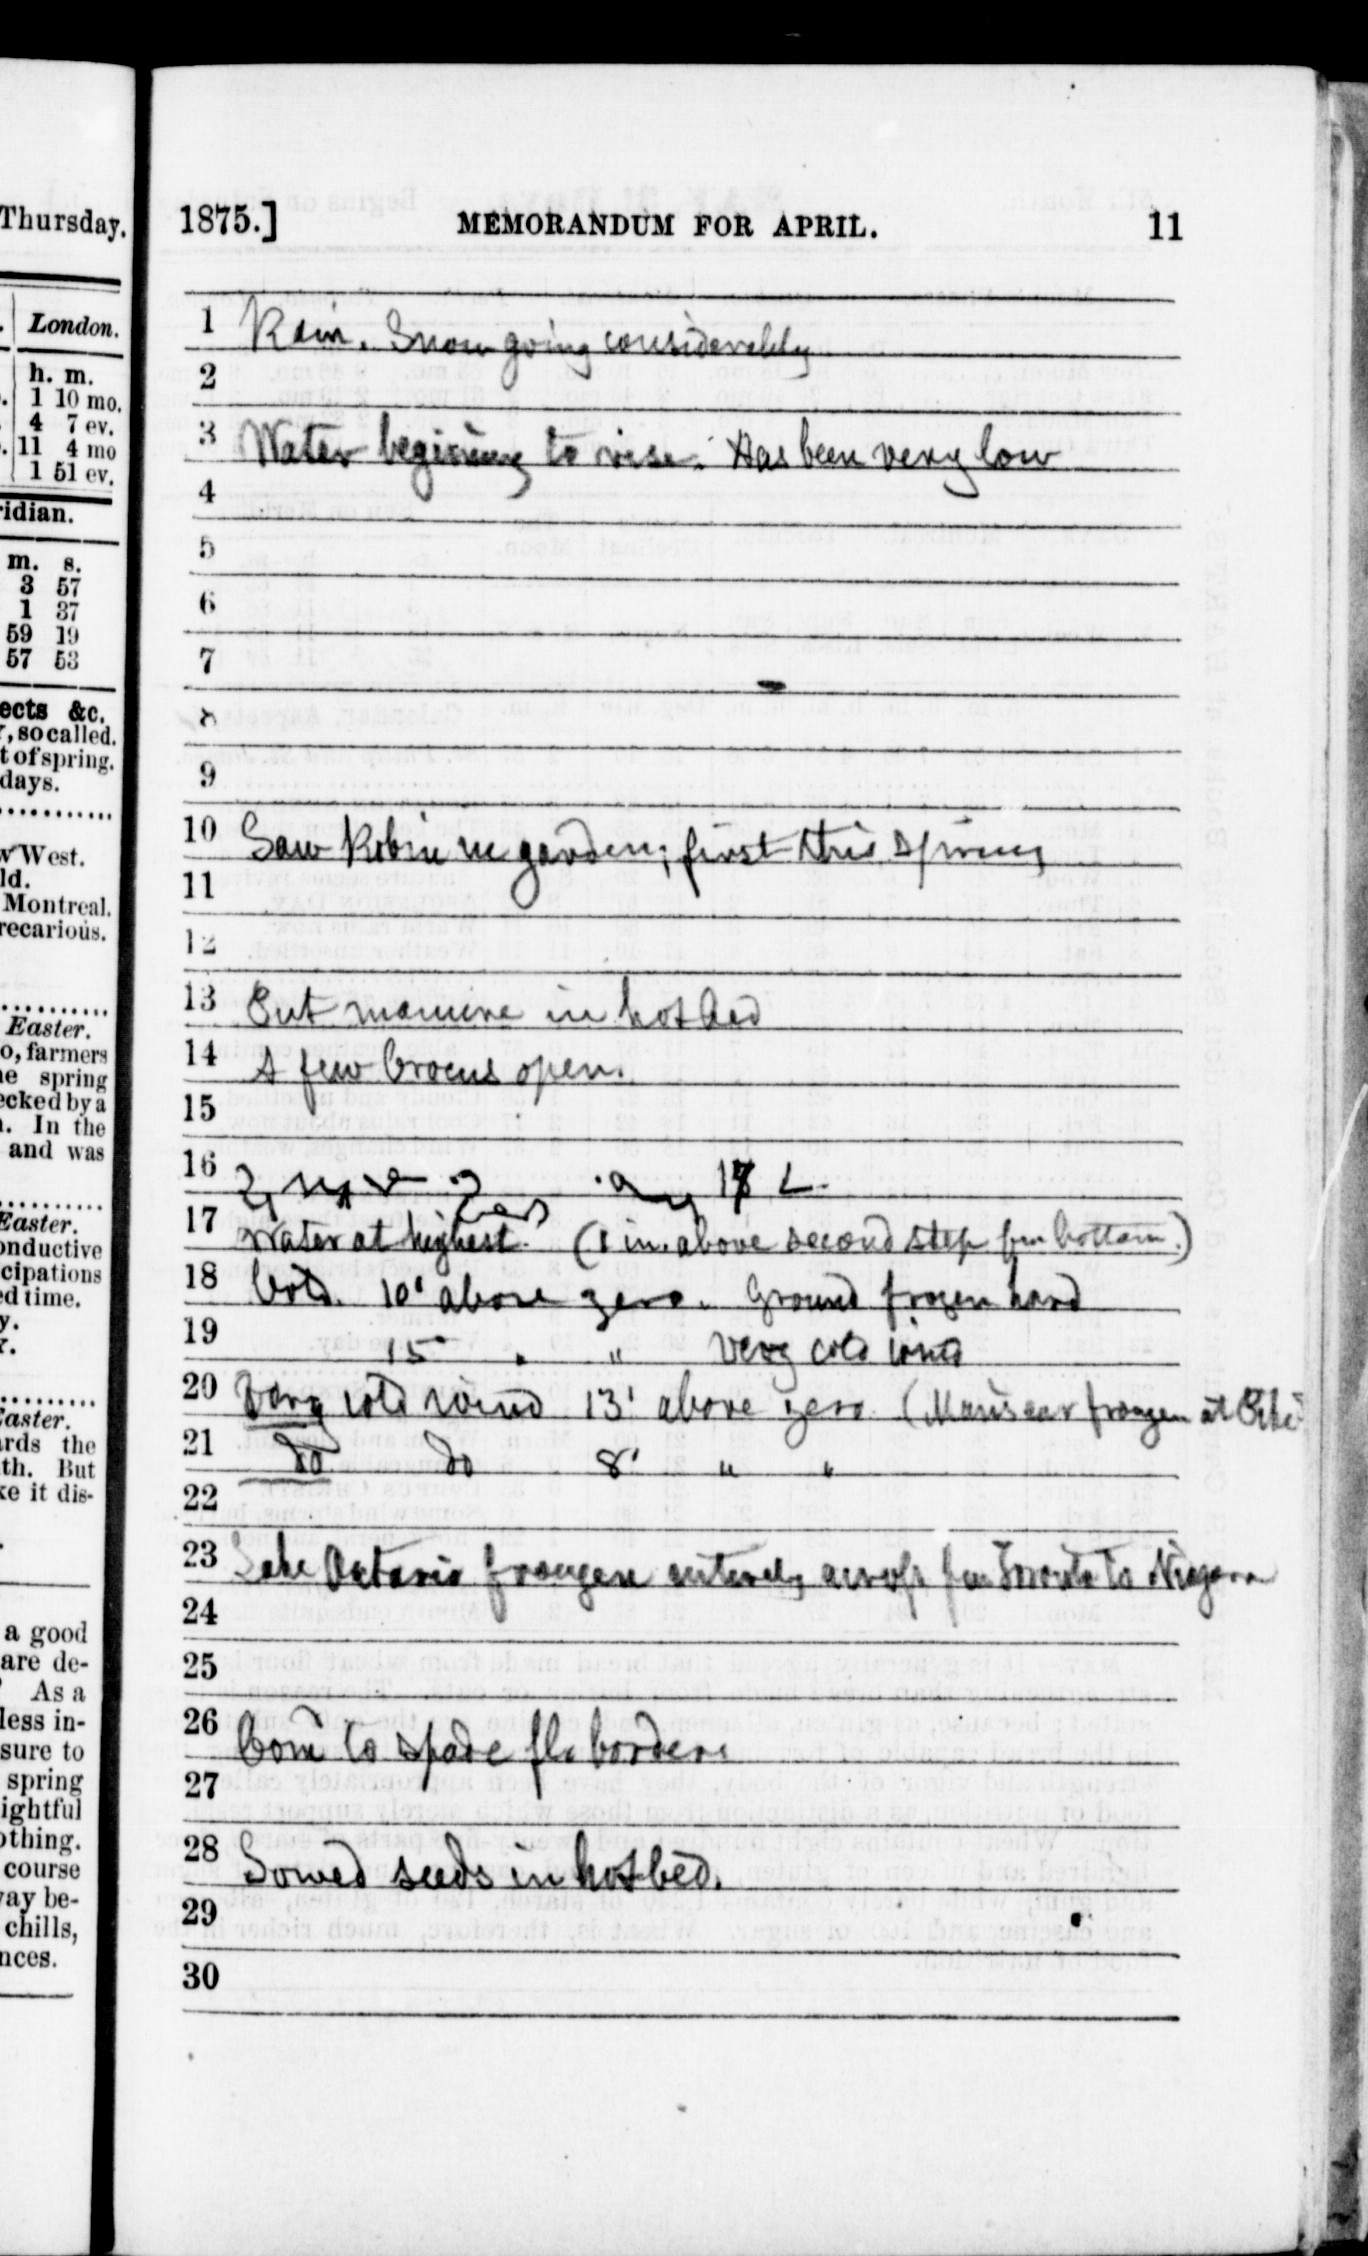 Thursday.
London.
h. m.
1 10 mo.
4 7 ev.
11 4 mo
1 51 ev.
ridian.
m. s.
3 57
1 37
59 19
57 53
ects &c.
, so called.
t of spring.
days.
West.
ld.
Montreal.
recarious.
Easter.
o, farmers
e spring
ecked by a
. In the
and was
Easter.
onductive
cipations
ed time.
y.
r.
Easter.
ards the
th. But
ke it dis-
a good
are de-
As a
less in-
sure to
spring
ightful
othing.
course
ay be-
chills,
nces.
1875.] MEMORANDUM FOR APRIL. 11
1 Rain. Snow going considerably
2
3 Water beginning to rise. Has been very low
4
5
6
7
8
9
10 Saw Robin in garden; first this spring
11
12
13 Put manure in hotbed
14 A few Crocus open.
15
16
17 Water at highest. (1 in. above second step from bottom.)
18 Cold. 10° above zero. Ground frozen hard
19 15 " " Very cold wind
20 Very cold wind 13° above zero (Man's ear frozen at
21 do do 8° " "
22
23 Lake Ontario frozen entirely across from Toronto to Niagara
24
25
26 Com to spade flr borders
27
28 Sowed seeds in hotbed.
29
30